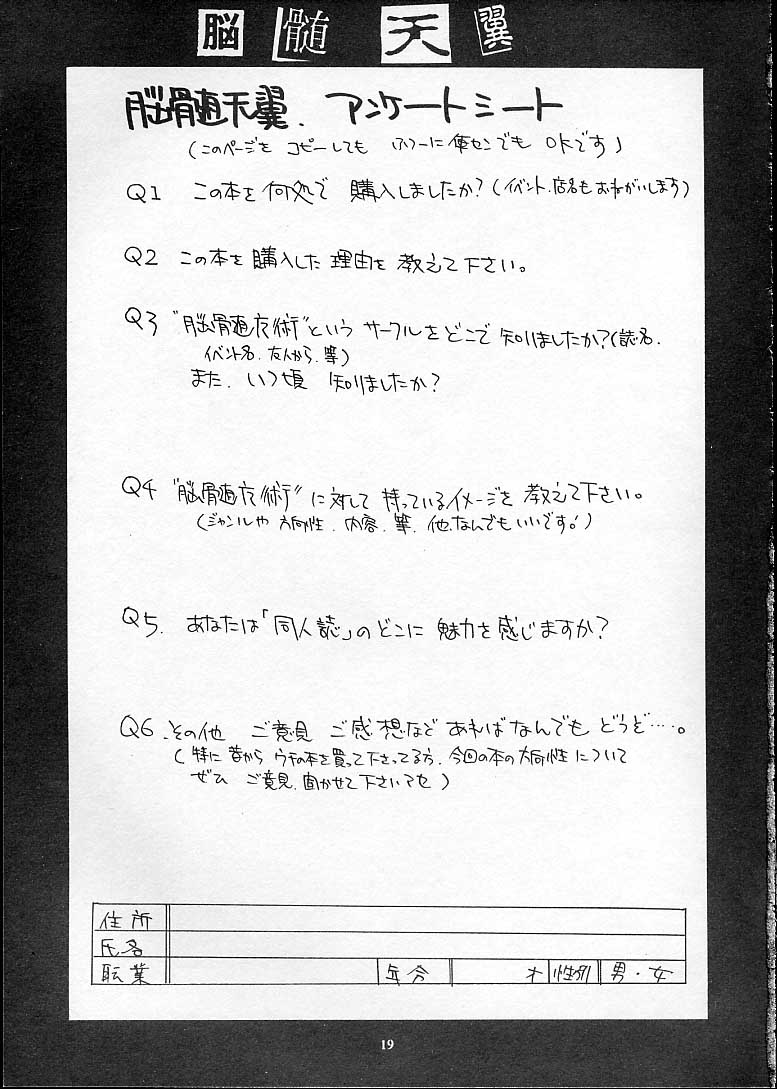 脳髄天翼
脳髄天翼、アンケートシート
(このページを コピーしても ふつーに便センでも OKです)
Q1 この本を何処で 購入しましたか?(イベント、店名もおねがいします)
Q2 この本を購入した理由を教えて下さい。
Q3 "脳髄魔術"という サークルをどこで 知りましたか?(誌名、
イベント名、友人から、等)
また、いつ頃 知りましたか?
Q4 "脳髄魔術" に対して 持っているイメージを 教えて下さい。
(ジャンルや 方向性、内容、等、他、なんでもいいです!)
Q5、 あなたは「同人誌」のどこに 魅力を感じますか?
Q6、その他 ご意見 ご感想など あればなんでも どうぞ…。
(特に 昔から ウチの本を買って下さってる方、今回の本の方向性 について
ぜひ ご意見、聞かせて下さいませ)
住所
氏名
転業 年令 才 性別 男・女
19